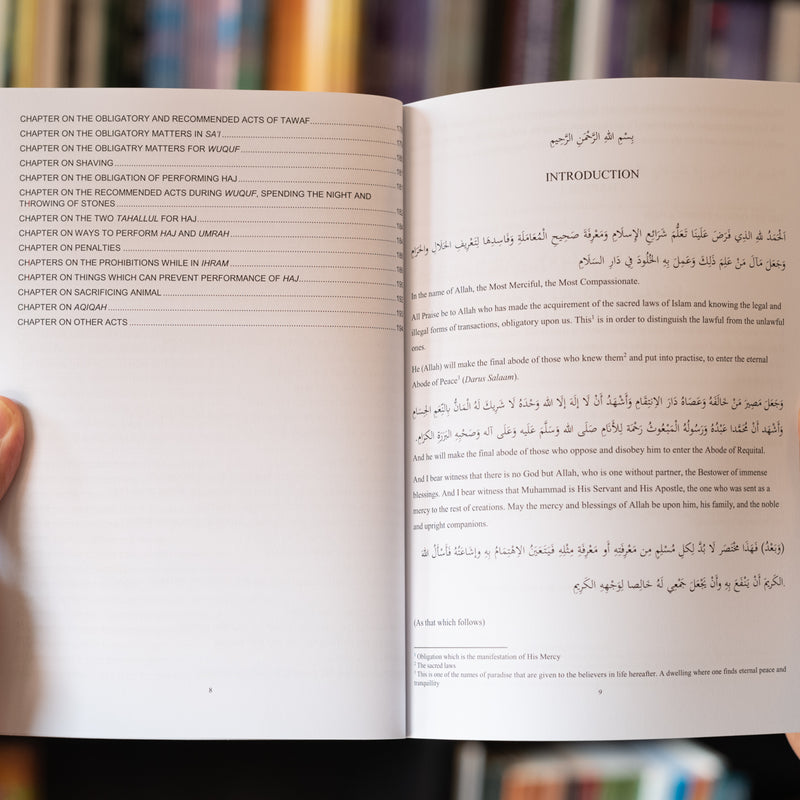 CHAPTER ON THE OBLIGATORY AND RECOMMENDED ACTS OF TAWAF
CHAPTER ON THE OBLIGATORY MATTERS IN SA'I
CHAPTER ON THE OBLIGATRY MATTERS FOR WUQUF
CHAPTER ON SHAVING
CHAPTER ON THE OBLIGATION OF PERFORMING HAJ
CHAPTER ON THE RECOMMENDED ACTS DURING WUQUF, SPENDING THE NIGHT AND
THROWING OF STONES
CHAPTER ON THE TWO TAHALLUL FOR HAJ
CHAPTER ON WAYS TO PERFORM HAJ AND UMRAH
CHAPTER ON PENALTIES
CHAPTERS ON THE PROHIBITIONS WHILE IN IHRAM
CHAPTER ON THINGS WHICH CAN PREVENT PERFORMANCE OF HAJ
CHAPTER ON SACRIFICING ANIMAL
CHAPTER ON AQIQAH
CHAPTER ON OTHER ACTS 194
8
بِسْمِ اللهِ الرَّحْمَنِ الرَّحِيمِ
INTRODUCTION
اَلْحَمْدُ للهِ الذِي فَرَضَ عَلَيْنَا تَعَلُّمَ شَرَائِعِ الإِسْلَامِ وَمَعْرِفَةَ صَحِيحِ الْمُعَامَلَةِ وَفَاسِدِهَا لِتَعْرِيفِ الحَلَالِ والحَرَامِ
وَجَعَلَ مَآلَ مَنْ عَلِمَ ذَلِكَ وَعَمِلَ بِهِ الخُلُودَ فِي دَارِ السَّلَامِ
In the name of Allah, the Most Merciful, the Most Compassionate.
All Praise be to Allah who has made the acquirement of the sacred laws of Islam and knowing the legal and
illegal forms of transactions, obligatory upon us. This¹ is in order to distinguish the lawful from the unlawful
ones.
He (Allah) will make the final abode of those who knew them² and put into practise, to enter the eternal
Abode of Peace³ (Darus Salaam).
وَجَعَلَ مَصِيرَ مَنْ خَالَفَهُ وَعَصَاهُ دَارَ الاِنْتِقَامِ وَأَشْهَدُ أَنْ لَا إِلَهَ إِلَّا الله وَحْدَهُ لَا شَرِيكَ لَهُ الْمَانُّ بِالنِّعَمِ الجِسَامِ
وَأَشْهَد أَنَّ مُحَمَّدا عَبْدُهُ وَرَسُولُهُ الْمَبْعُوثُ رَحْمَة لِلأَنَامِ صَلَّى الله وَسَلَّمَ عَلَيه وَعَلَى آله وَصَحْبِهِ البَرَرَةِ الكِرَامِ.
And he will make the final abode of those who oppose and disobey him to enter the Abode of Requital.
And I bear witness that there is no God but Allah, who is one without partner, the Bestower of immense
blessings. And I bear witness that Muhammad is His Servant and His Apostle, the one who was sent as a
mercy to the rest of creations. May the mercy and blessings of Allah be upon him, his family, and the noble
and upright companions.
(وَبَعْدُ) فَهَذَا مُخْتَصَر لَا بُدَّ لِكلِ مُسْلِمٍ مِن مَعْرِفَتِهِ أَو مَعْرِفَةِ مِثْلِهِ فَيَتَعَيَّنُ الاِهْتِمَامُ بِهِ وإِشَاعَتُهُ فَأَسْأَلُ اللهَ
الكَرِيمَ أَنْ يَنْفَعَ بِهِ وأَنْ يَجْعَلَ جَمْعِي لَهُ خَالِصا لِوَجْهِهِ الكَرِيمِ.
(As that which follows)
¹ Obligation which is the manifestation of His Mercy
² The sacred laws
³ This is one of the names of paradise that are given to the believers in life hereafter. A dwelling where one finds eternal peace and
tranquility
9